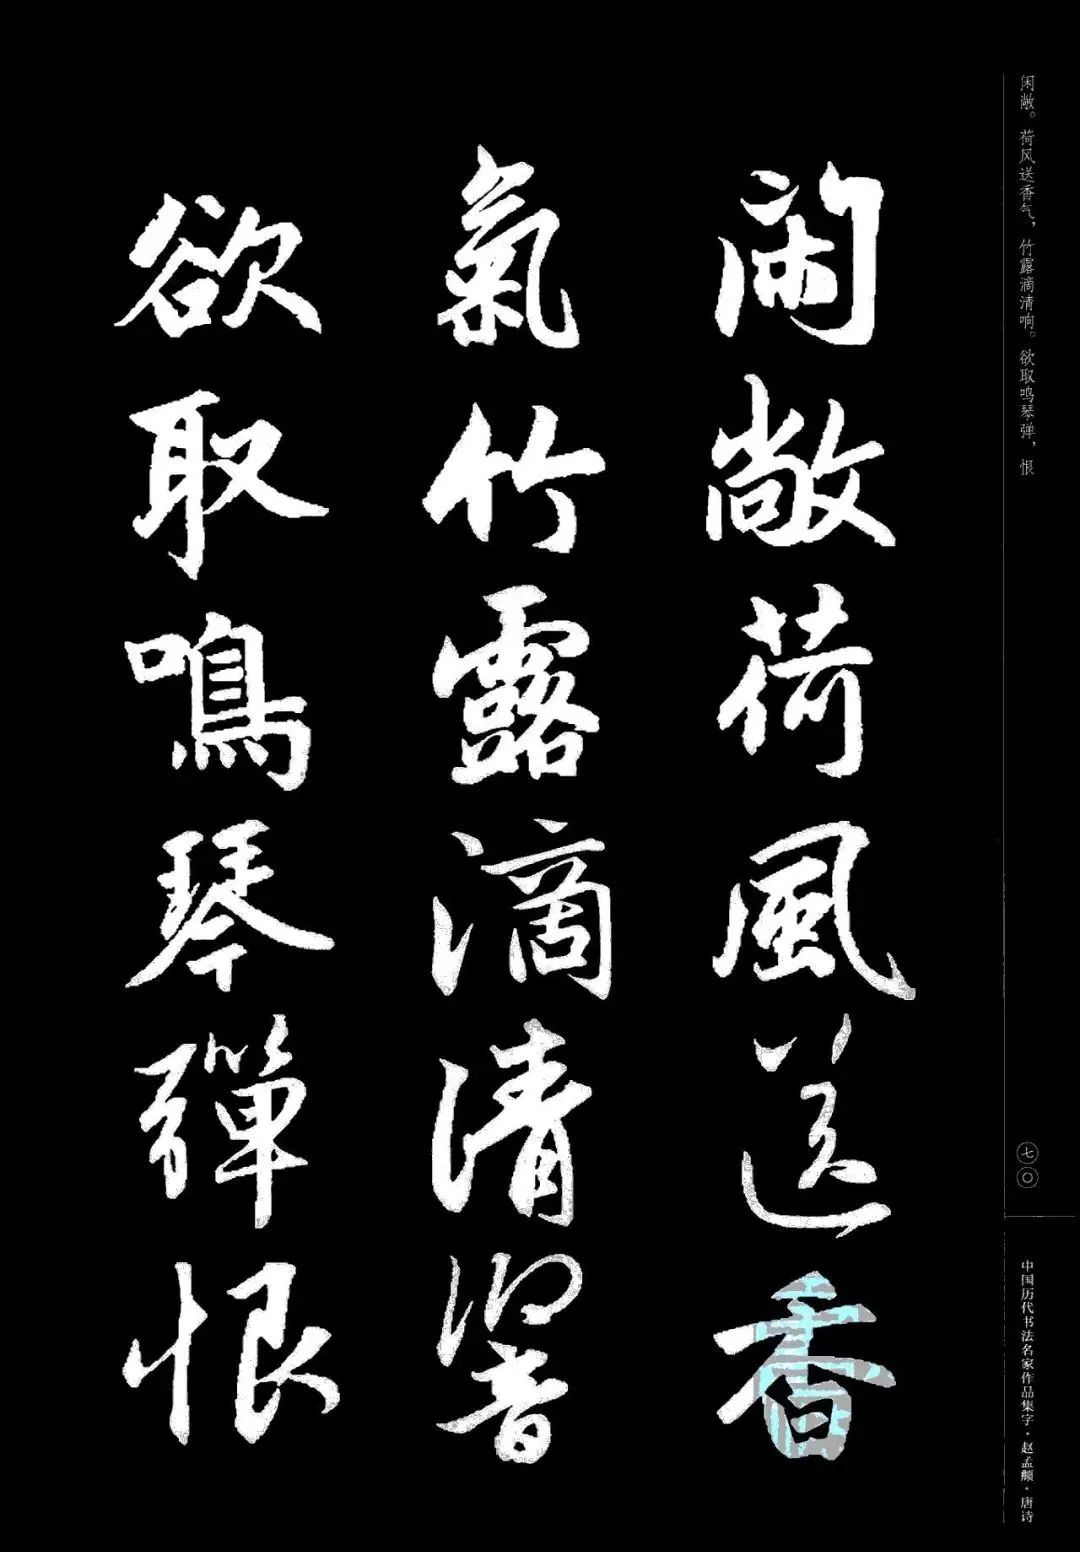 闲敞。荷风送香气，竹露滴清响。欲取鸣琴弹，恨
閑敞荷風送香
氣竹露滴清響
欲取鳴琴彈恨
七〇
中国历代书法名家作品集字·赵孟頫·唐诗